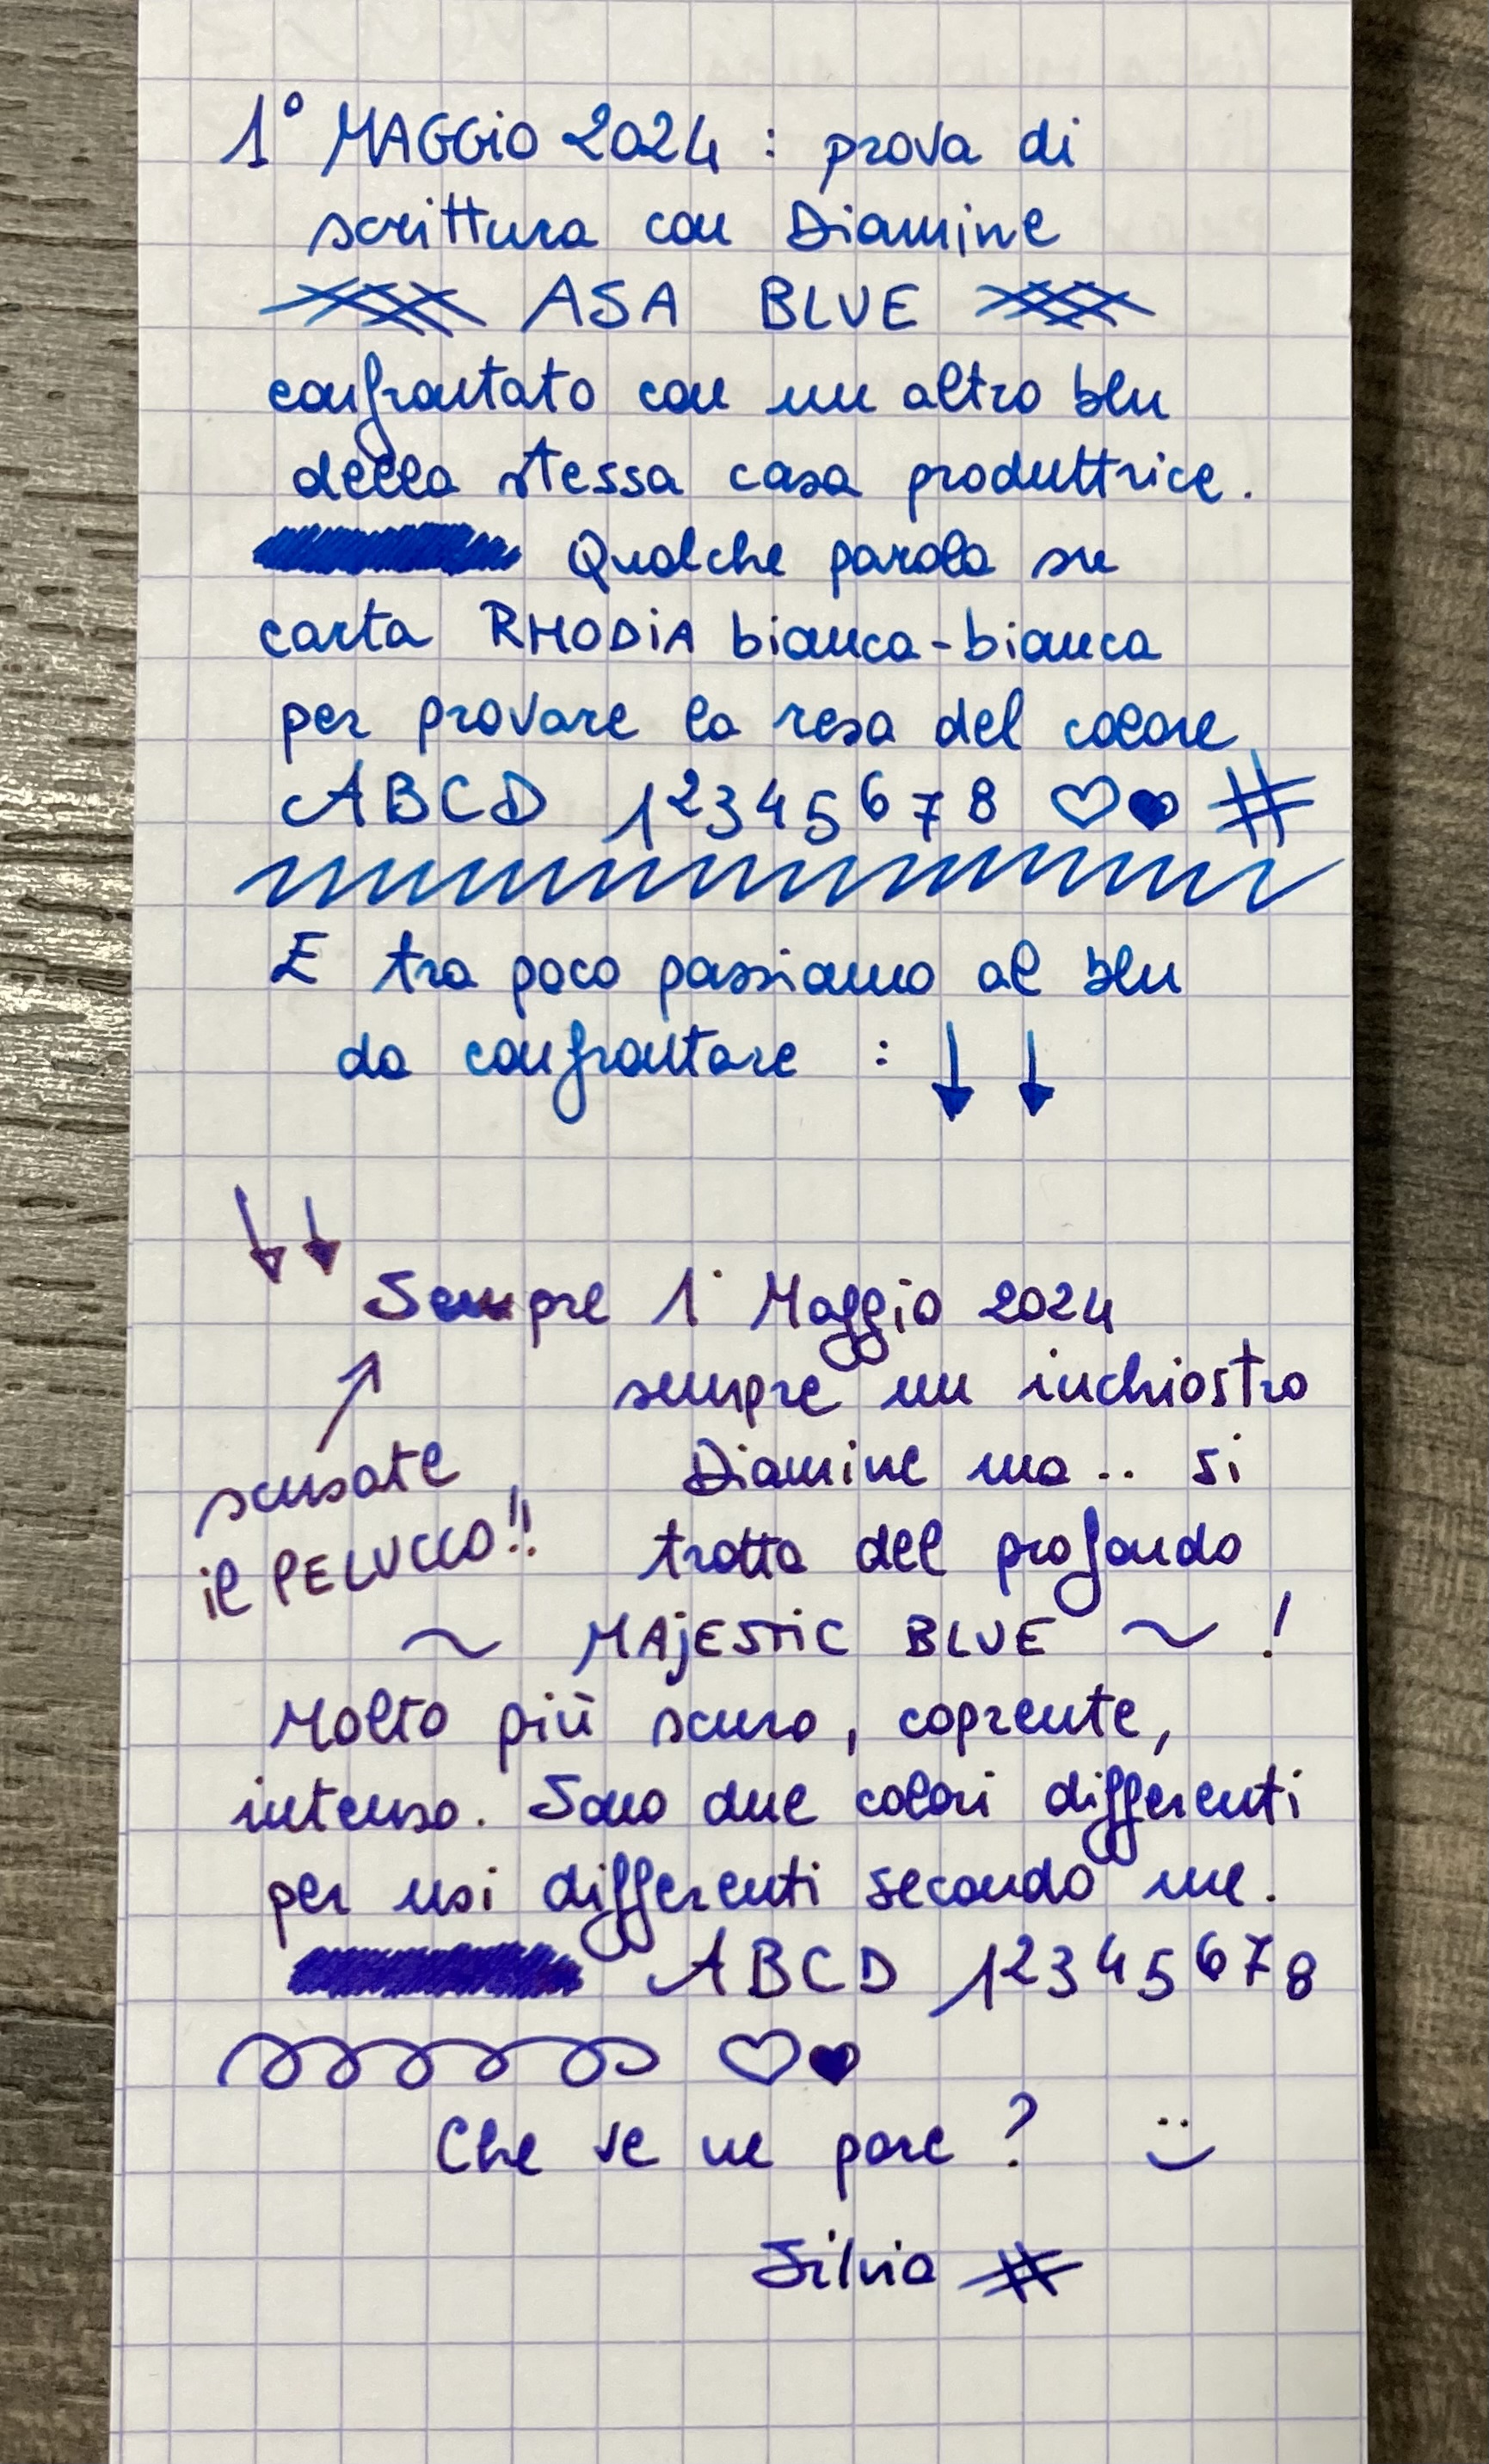 1° MAGGIO 2024 : prova di
scrittura con Diamine
ASA BLUE
confrontato con un altro blu
della stessa casa produttrice.
Qualche parola su
carta RHODiA bianca-bianca
per provare la resa del colore
ABCD 12345678 ♡♥ #
E tra poco passiamo al blu
da confrontare : ↓ ↓
↓↓
Sempre 1° Maggio 2024
sempre un inchiostro
Diamine ma.. si
tratta del profondo
scusate
il PELUCCO!!
~ MAjESTiC BLUE ~ !
Molto più scuro, coprente,
intenso. Sono due colori differenti
per usi differenti secondo me.
ABCD 12345678
♡♥
Che ve ne pare ? :)
Silvia #